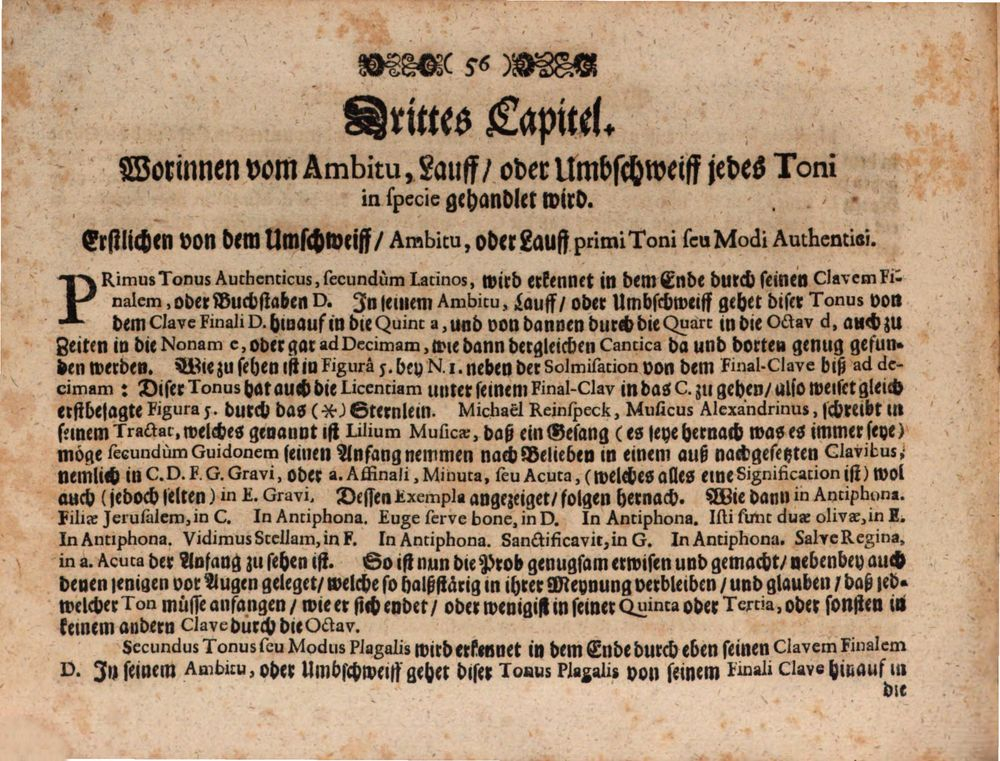 ( 56 )
Drittes Capitel.
Worinnen vom Ambitu, Lauff/ oder Umbschweiff jedes Toni
in specie gehandlet wird.
Erstlichen von dem Umschweiff/ Ambitu, oder Lauff primi Toni seu Modi Authentici.
PRimus Tonus Authenticus, secundùm Latinos, wird erkennet in dem Ende durch seinen Clavem Fi-
nalem, oder Buchstaben D. In seinem Ambitu, Lauff/ oder Umbschweiff gehet diser Tonus von
dem Clave Finali D. hinauf in die Quint a, und von dannen durch die Quart in die Octav d, auch zu
Zeiten in die Nonam e, oder gar ad Decimam, wie dann dergleichen Cantica da und dorten genug gefun-
den werden. Wie zu sehen ist in Figurâ 5. bey N. 1. neben der Solmisation von dem Final-Clave biß ad de-
cimam: Diser Tonus hat auch die Licentiam unter seinem Final-Clav in das C. zu gehen/ also weiset gleich
erstbesagte Figura 5. durch das (*) Sternlein. Michaël Reinspeck, Musicus Alexandrinus, schreibt in
seinem Tractat, welches genannt ist Lilium Musicæ, daß ein Gesang (es seye hernach was es immer seye)
möge secundùm Guidonem seinen Anfang nemmen nach Belieben in einem auß nachgesetzten Clavibus,
nemlich in C. D. F. G. Gravi, oder a. Affinali, Minuta, seu Acuta, (welches alles eine Signification ist) wol
auch (jedoch selten) in E. Gravi. Dessen Exempla angezeiget/ folgen hernach. Wie dann in Antiphona.
Filiæ Jerusalem, in C. In Antiphona. Euge serve bone, in D. In Antiphona. Isti sunt duæ olivæ, in E.
In Antiphona. Vidimus Stellam, in F. In Antiphona. Sanctificavit, in G. In Antiphona. Salve Regina,
in a. Acuta der Anfang zu sehen ist. So ist nun die Prob genugsam erwisen und gemacht/ nebenbey auch
denen jenigen vor Augen geleget/ welche so halßstärig in ihrer Meynung verbleiben/ und glauben/ daß jed-
welcher Ton müsse anfangen/ wie er sich endet/ oder wenigist in seiner Quinta oder Tertia, oder sonsten in
keinem andern Clave durch die Octav.
Secundus Tonus seu Modus Plagalis wird erkennet in dem Ende durch eben seinen Clavem Finalem
D. In seinem Ambitu, oder Umbschweiff gehet diser Tonus Plagalis von seinem Finali Clave hinauf in
die